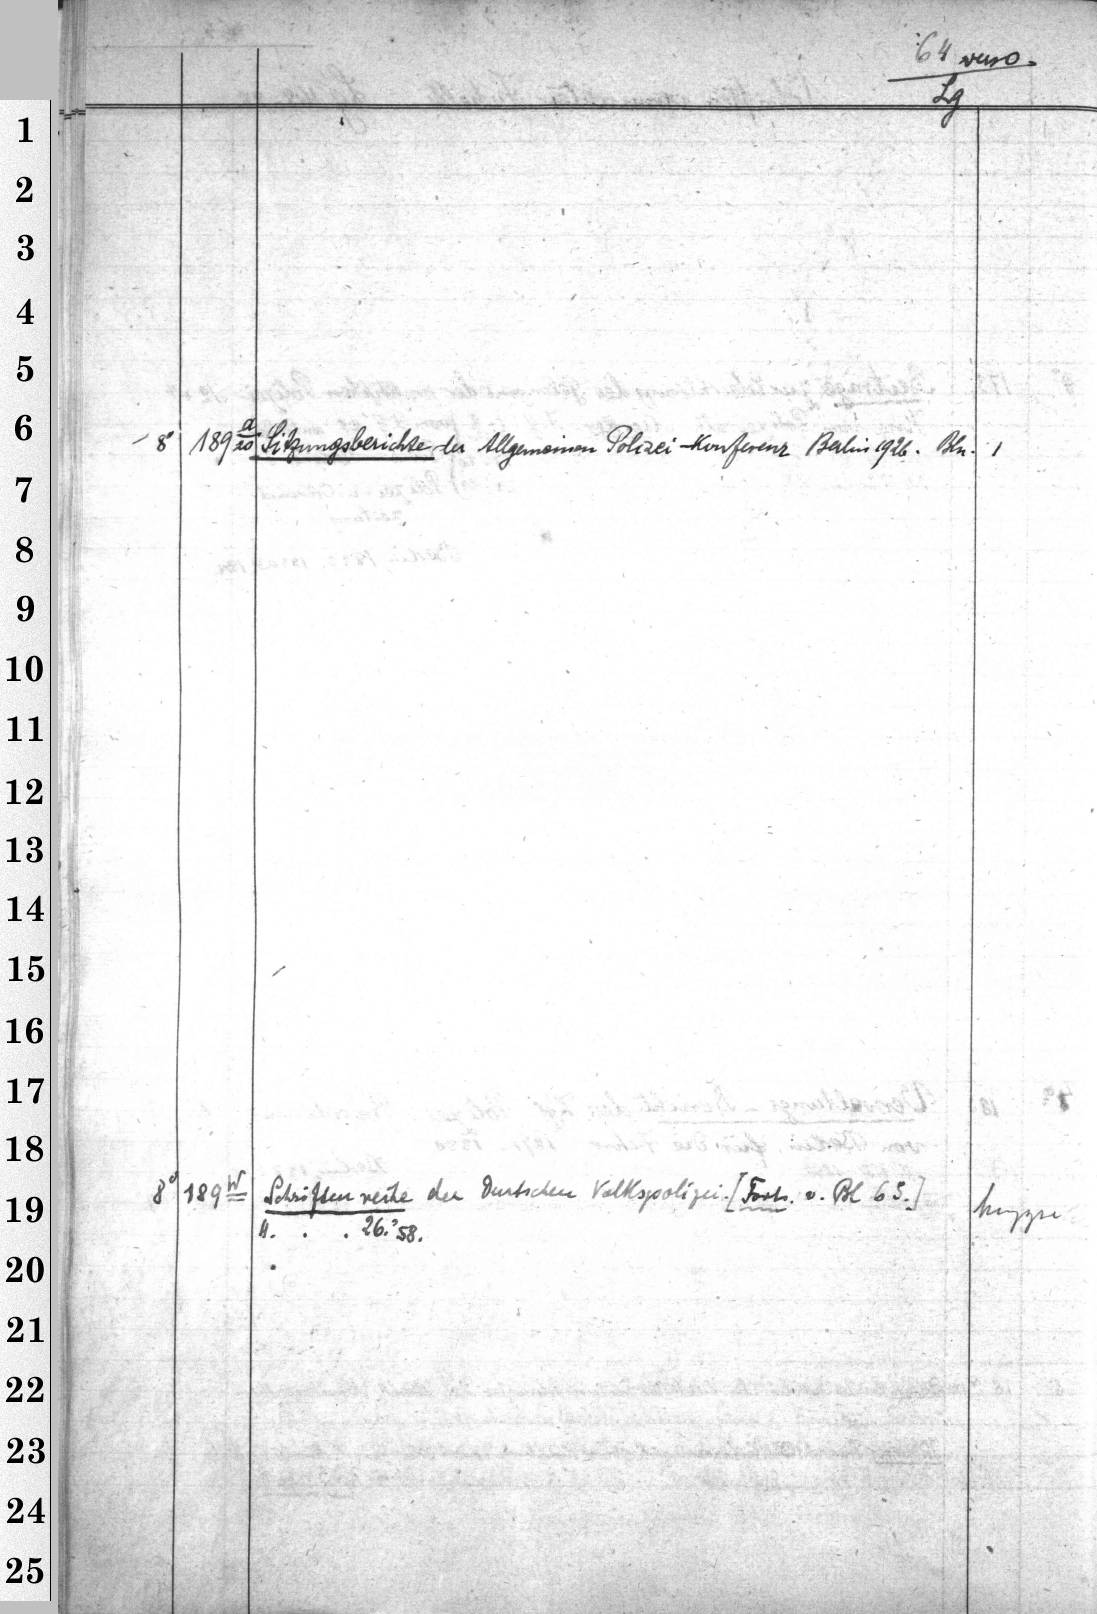 64 verso.
Lg
1
2
3
4
5
6
8° 189 a/20 Sitzungsberichte der Allgemeinen Polizei-Konferenz Berlin 1926. Bln. 1
7
8
9
10
11
12
13
14
15
16
17
18
8° 189 w Schriftenreihe der Deutschen Volkspolizei. [Forts. v. Bl 65.]
19
26.'58.
20
21
22
23
24
25